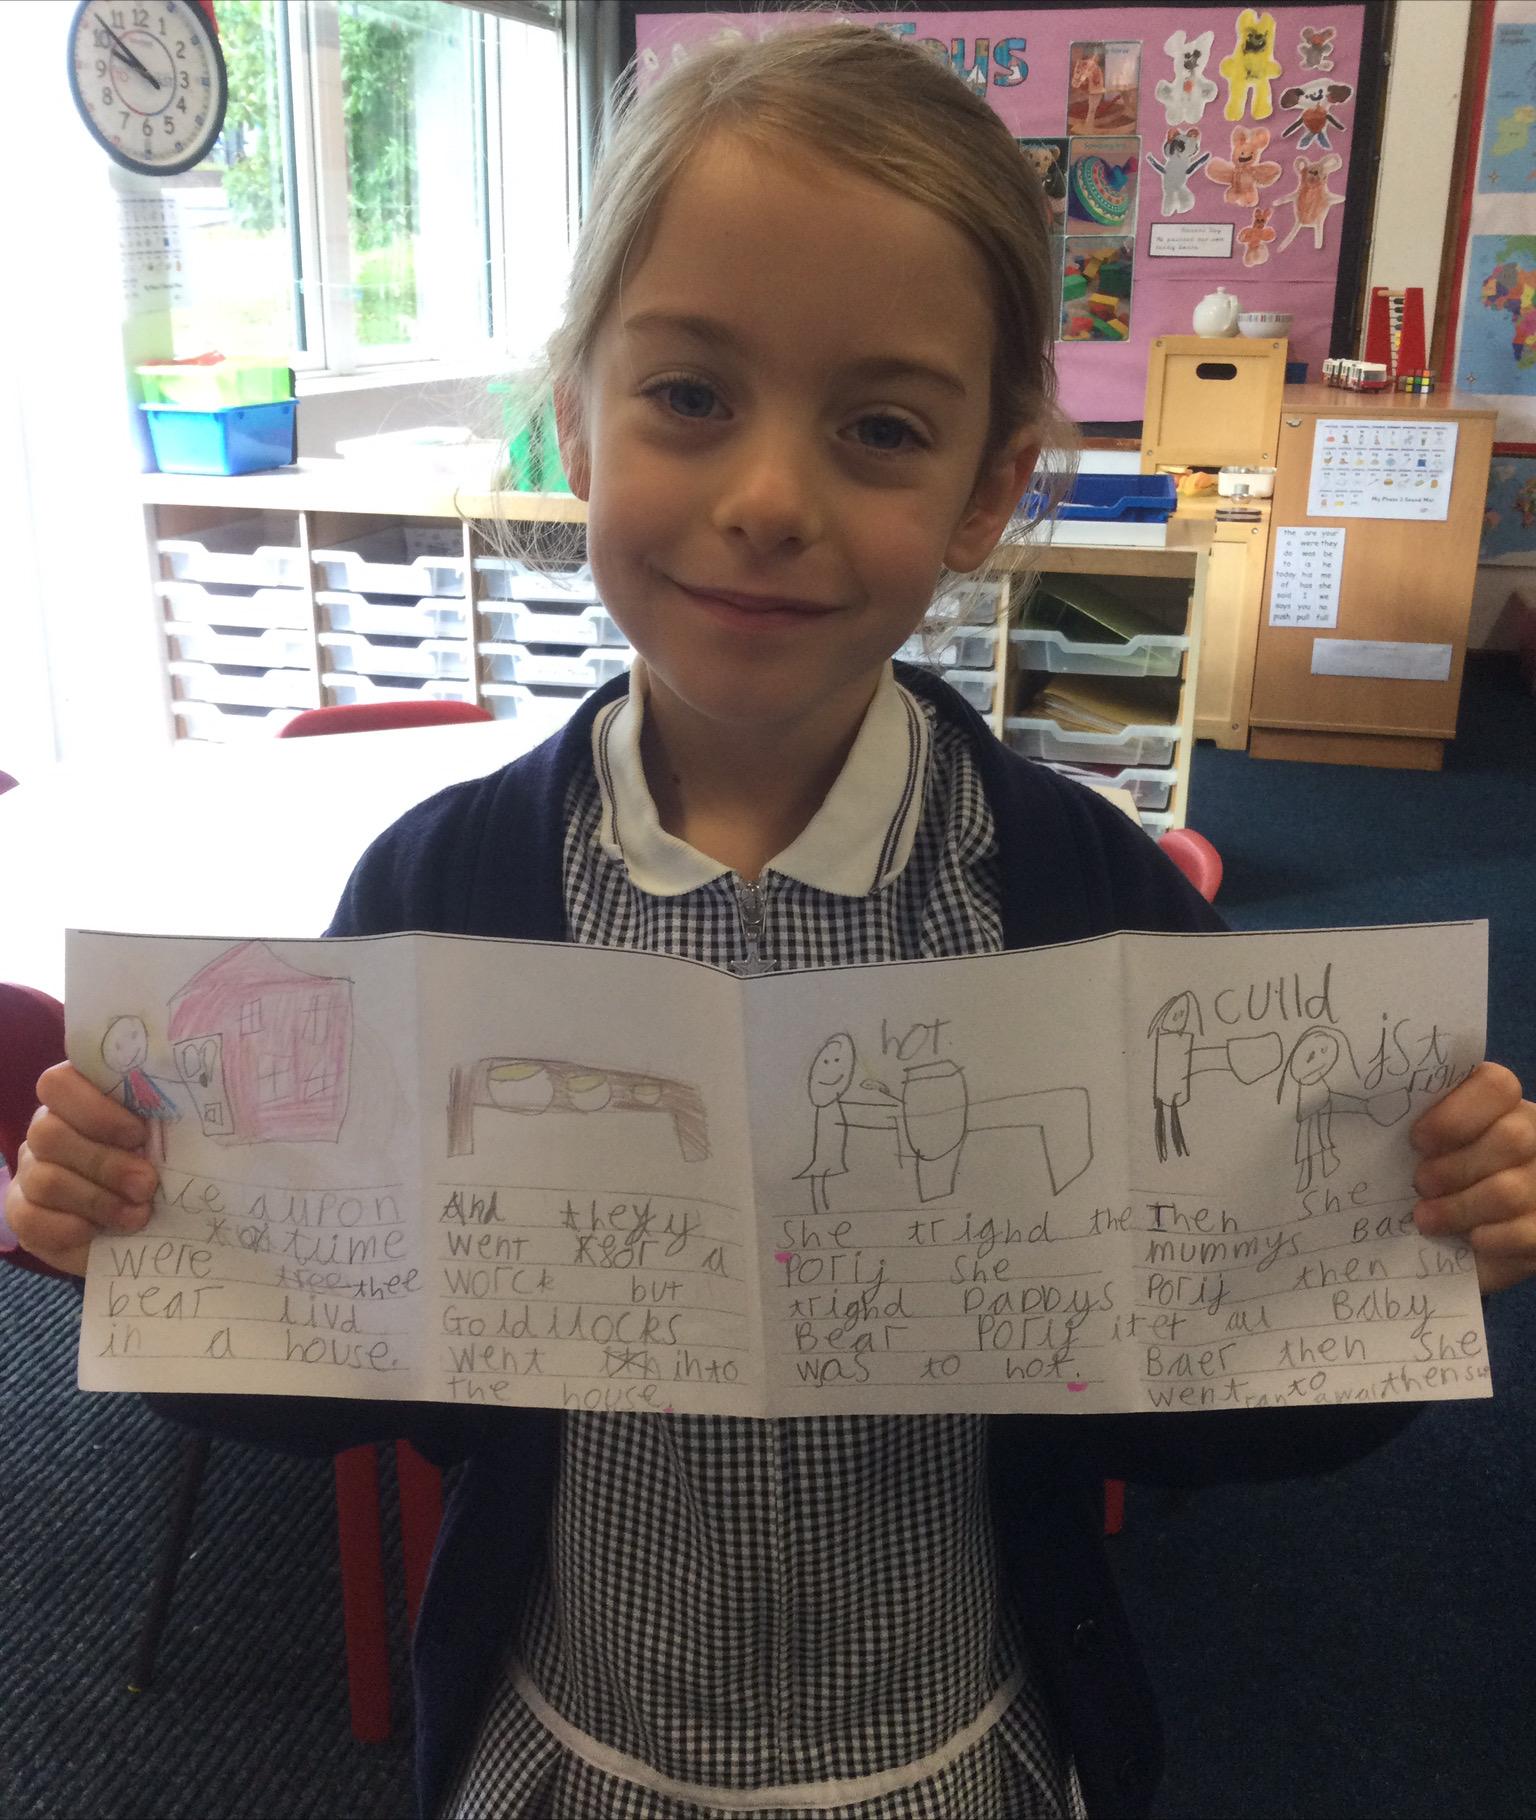 Toys
11 12 1
10 2
9 3
8 4
7 6 5
the are your
a were they
do was be
to is he
today his me
of has she
said I we
says you no
push pull full
My Phase 3 Sound Mat
a upon
time
were thee
bear livd
in a house.
And they
went for a
worck but
Goldilocks
went into
the house.
hot
she trighd the
Porij she
trighd DaDDys
Bear Porij it
was to hot.
culld
jst
right
Then she
mummys Bae
Porij then she
et all Baby
Baer then she
went to
ran awai then